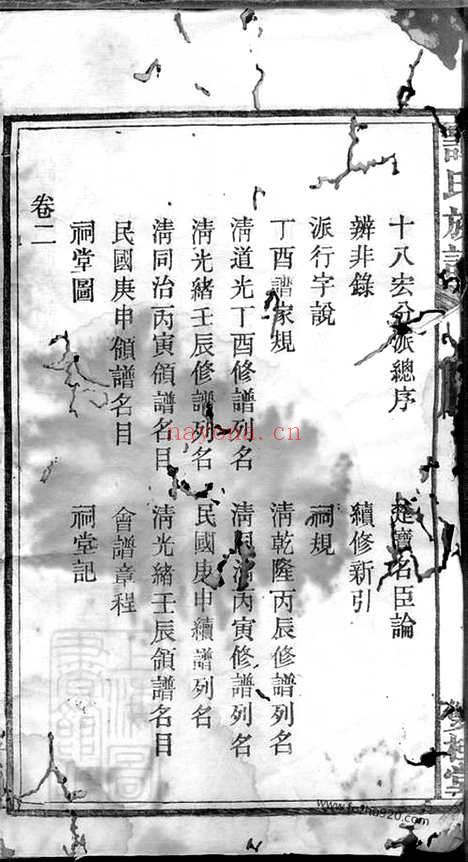 氏族譜
十八宏公派總序
名臣論
辨非錄
續修新引
派行字說
祠規
丁酉譜家規
清乾隆丙辰修譜列名
清道光丁酉修譜列名
清同治丙寅修譜列名
清光緒壬辰修譜列名
民國庚申續譜列名
清同治丙寅領譜名目
清光緒壬辰領譜名目
民國庚申領譜名目
會譜章程
祠堂圖
祠堂記
卷二
nayona.cn